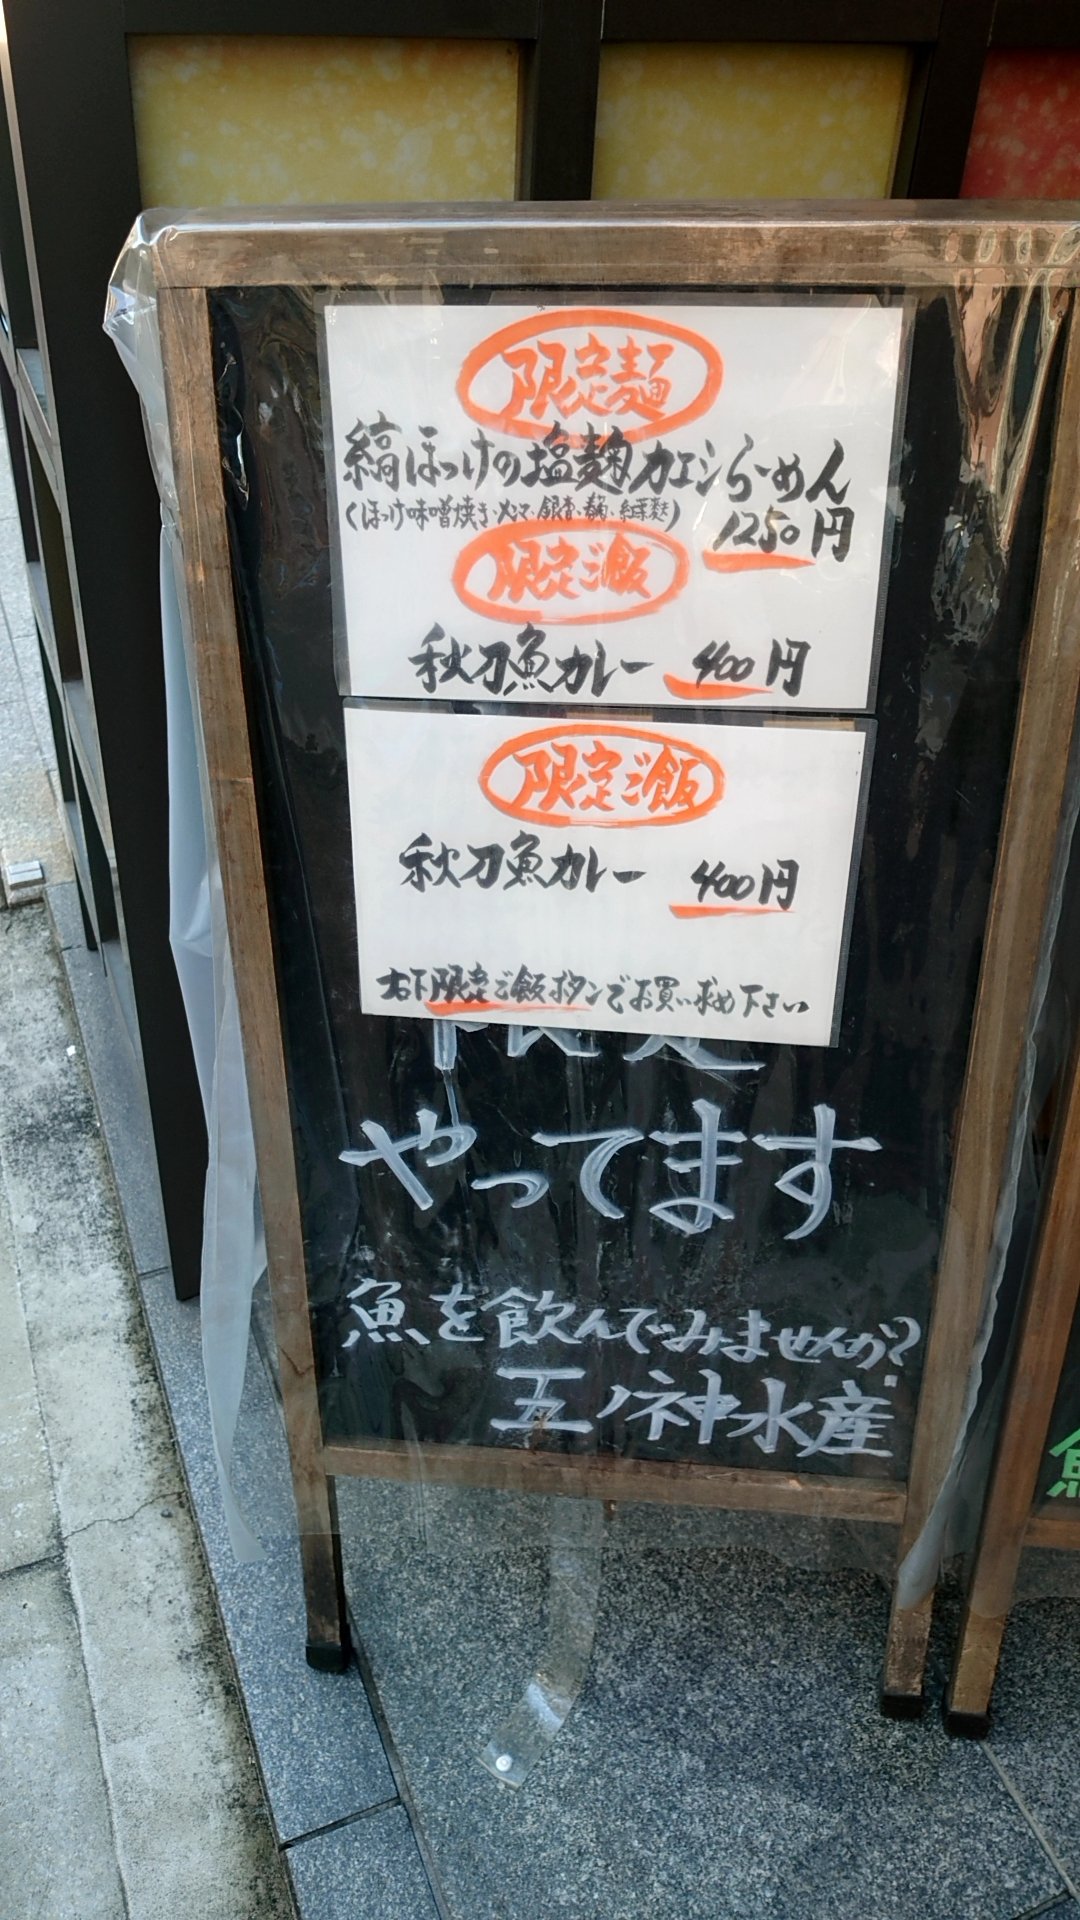 限定麺
縞ほっけの塩麹カエシらーめん
(ほっけ味噌焼き・メンマ・銀杏・麹・紅葉麩)
1250円
限定ご飯
秋刀魚カレー 400円
限定ご飯
秋刀魚カレー 400円
右下限定ご飯ボタンでお買い求め下さい
限定
やってます
魚を飲んでみませんか?
五ノ神水産